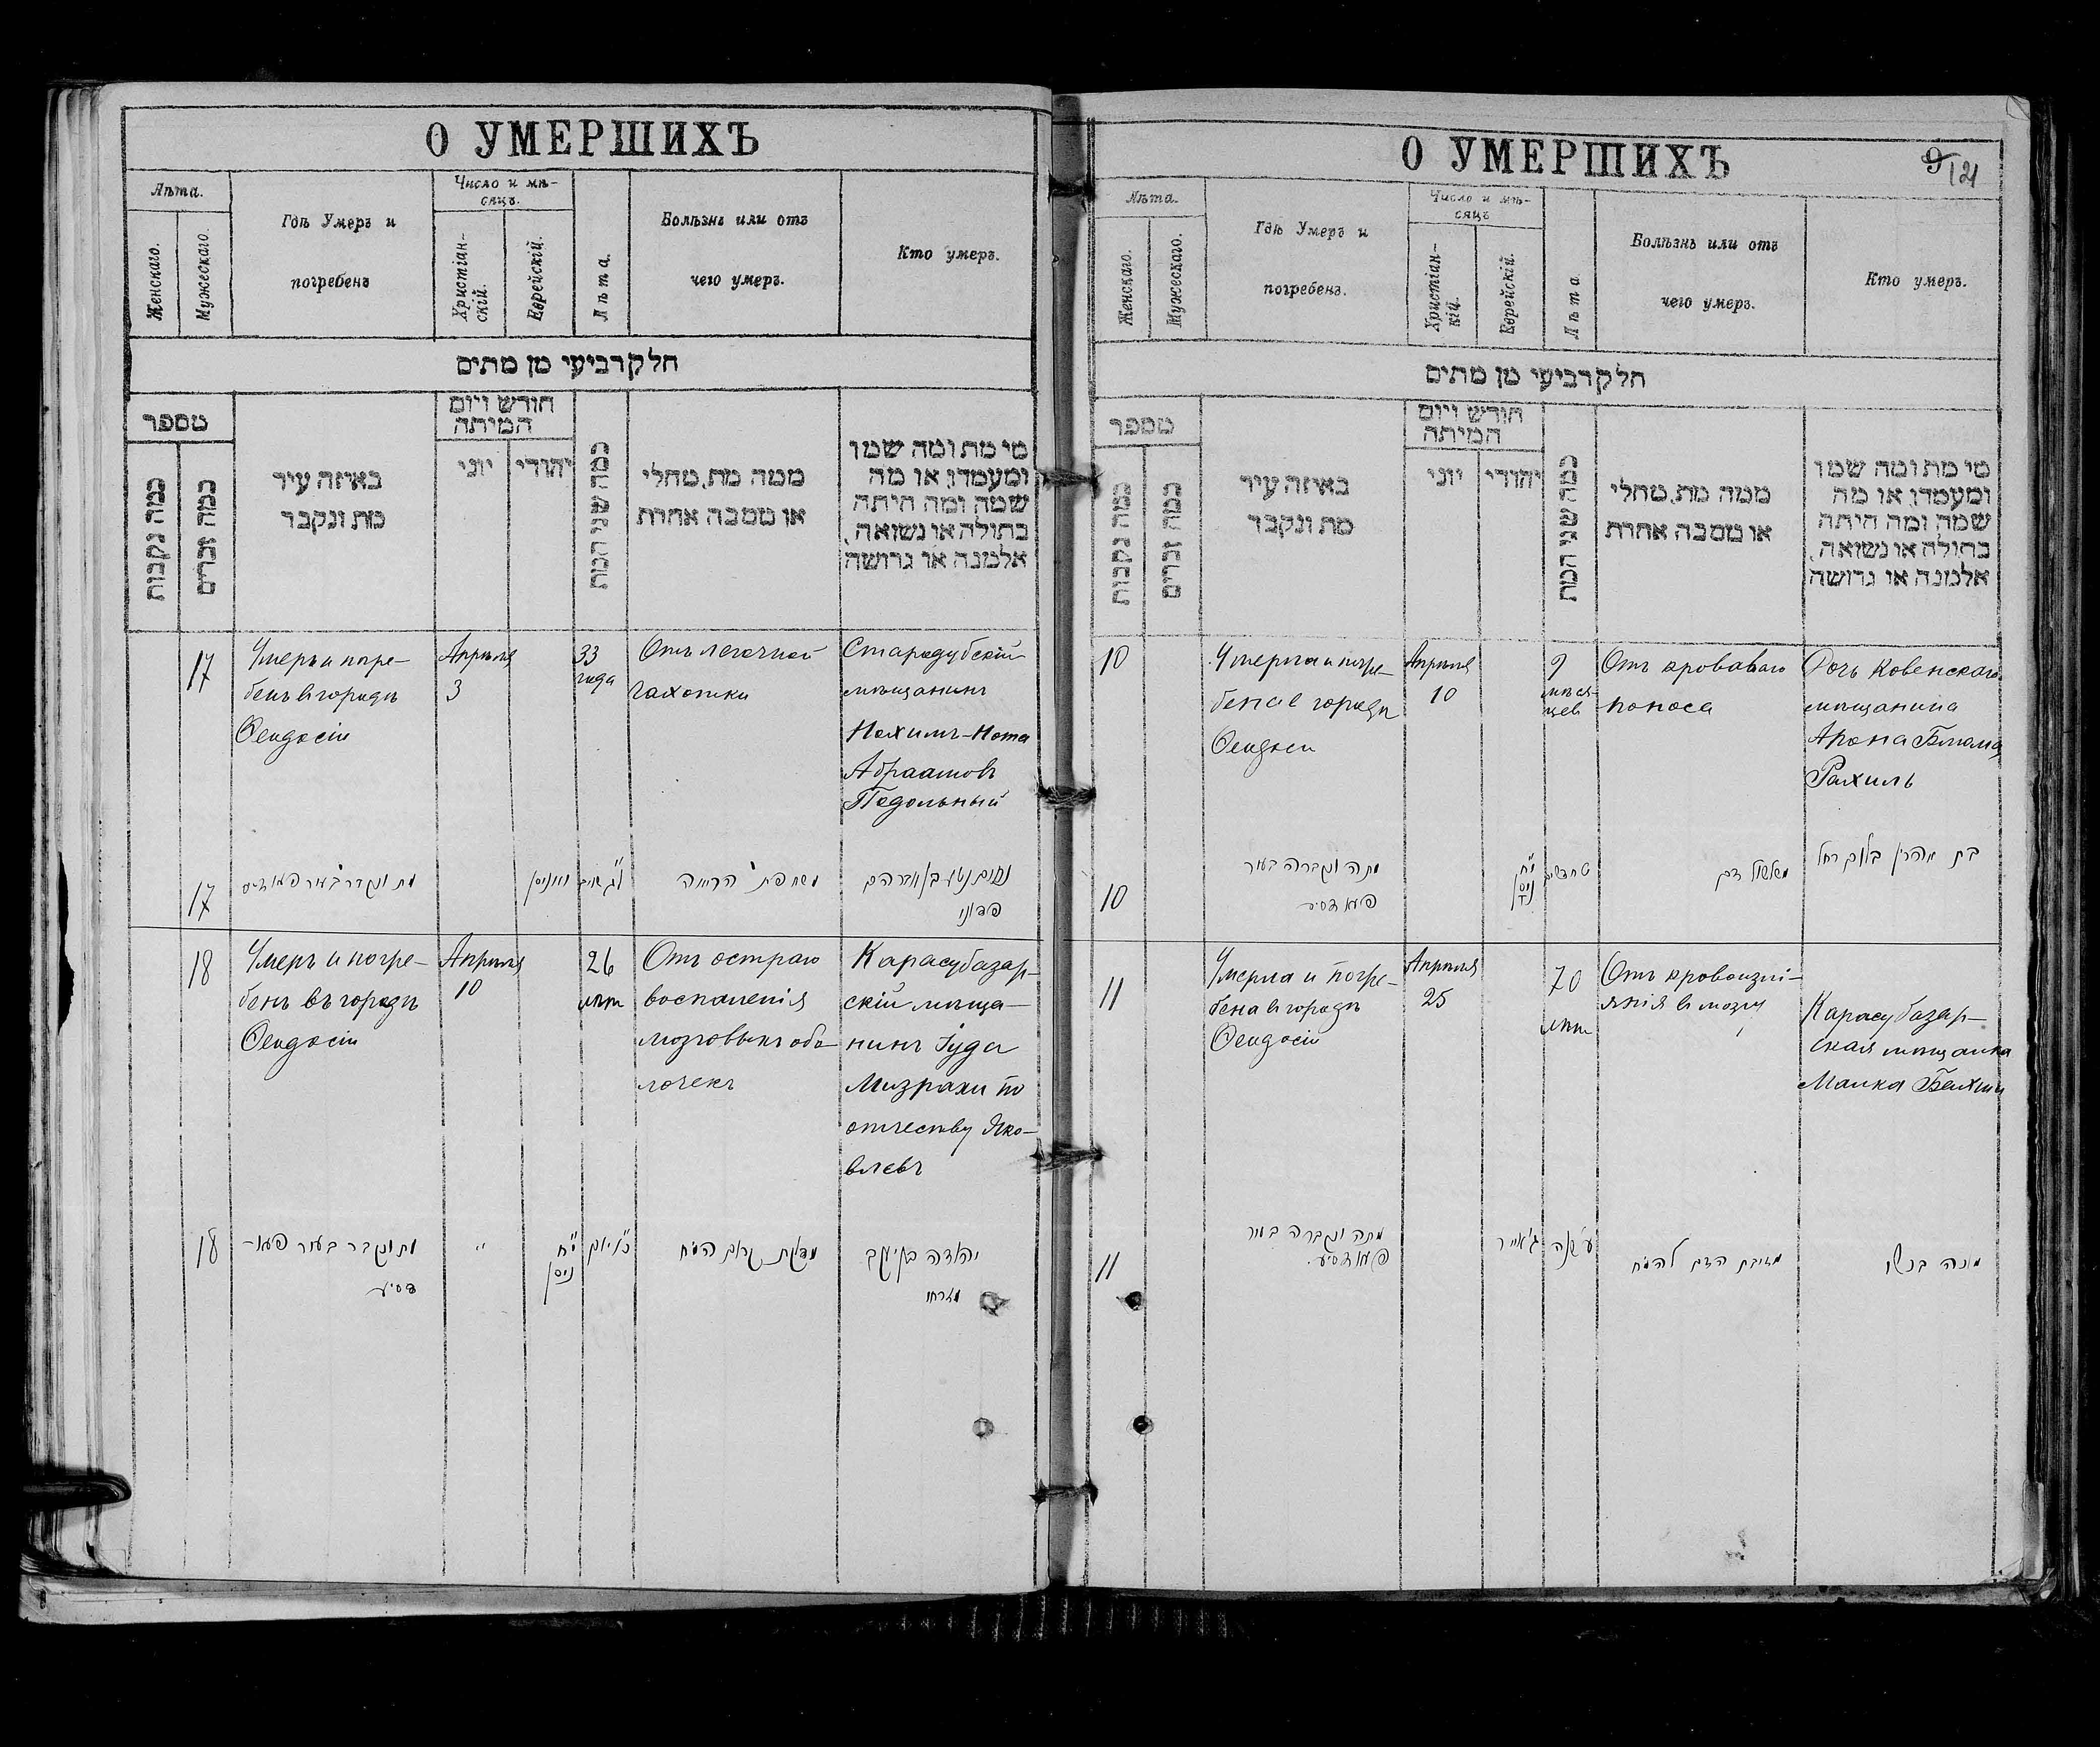 О УМЕРШИХЪ
Лѣта.
Женскаго.
Мужескаго.
Гдѣ Умеръ и
погребенъ
Число и мѣ-
сяцъ.
Христіан-
скій.
Еврейскій.
Лѣта.
Болѣзнь или отъ
чего умеръ.
Кто умеръ.
חלק רביעי מן מתים
מספר
כמה נקבות
כמה זכרים
באיזה עיר
מת ונקבר
חודש ויום
המיתה
יוני
יהודי
כמה שני המת
ממה מת, מחלי
או מסבה אחרת
מי מת ומה שמו
ומעמדו, או מה
שמה ומה היתה
בתולה או נשואה,
אלמנה או גרושה
17
Умеръ и погре-
бенъ въ городѣ
Ѳеодосіи
Апрѣля
3
33
года
Отъ легочной
чахотки
Стародубскій
мѣщанинъ
Нохимъ-Нота
Абраамовъ
Подольный
17
מת ונקבר בעיר
הריאה
נחום נטע בן אברהם
18
Умеръ и погре-
бенъ въ городѣ
Ѳеодосіи
Апрѣля
10
26
лѣтъ
Отъ остраго
воспаленія
мозговыхъ обо
лочекъ
Карасубазар-
скій мѣща-
нинъ Іуда
Мизрахи по
отчеству Яко-
влевъ
18
מת ונקבר בעיר פעאָ-
דסיע
"
י"ח
ניסן
קרום המוח
יהודה בן יעקב
מזרחי
О УМЕРШИХЪ
9/121
Лѣта.
Женскаго.
Мужескаго.
Гдѣ Умеръ и
погребенъ.
Число и мѣ-
сяцъ
Христіан-
кій.
Еврейскій.
Лѣта.
Болѣзнь или отъ
чего умеръ.
Кто умеръ.
חלק רביעי מן מתים
מספר
כמה נקבות
כמה זכרים
באיזה עיר
מת ונקבר
חודש ויום
המיתה
יוני
יהודי
כמה שני המת
ממה מת, מחלי
או מסבה אחרת
מי מת ומה שמו
ומעמדו, או מה
שמה ומה היתה
בתולה או נשואה,
אלמנה או גרושה
10
Умерла и погре-
бена в городѣ
Ѳеодосіи
Апрѣля
10
9
мѣся-
цев
Отъ кроваваго
поноса
Дочь Ковенскаго
мѣщанина
Арона Блюма
Рахиль
10
מתה ונקברה בעיר
פעאדסיע
י"ח
ניסן
ט חדשים
משלשול דם
בת אהרן בלום רחל
11
Умерла и погре-
бена въ городѣ
Ѳеодосіи
Апрѣля
25
70
лѣтъ
Отъ кровоизлі-
янія въ мозгу
Карасубазар-
ская мѣщанка
Малка
11
מתה ונקברה בעיר
פעאדסיע.
ג' אייר
ע' שנה
הדם להמוח